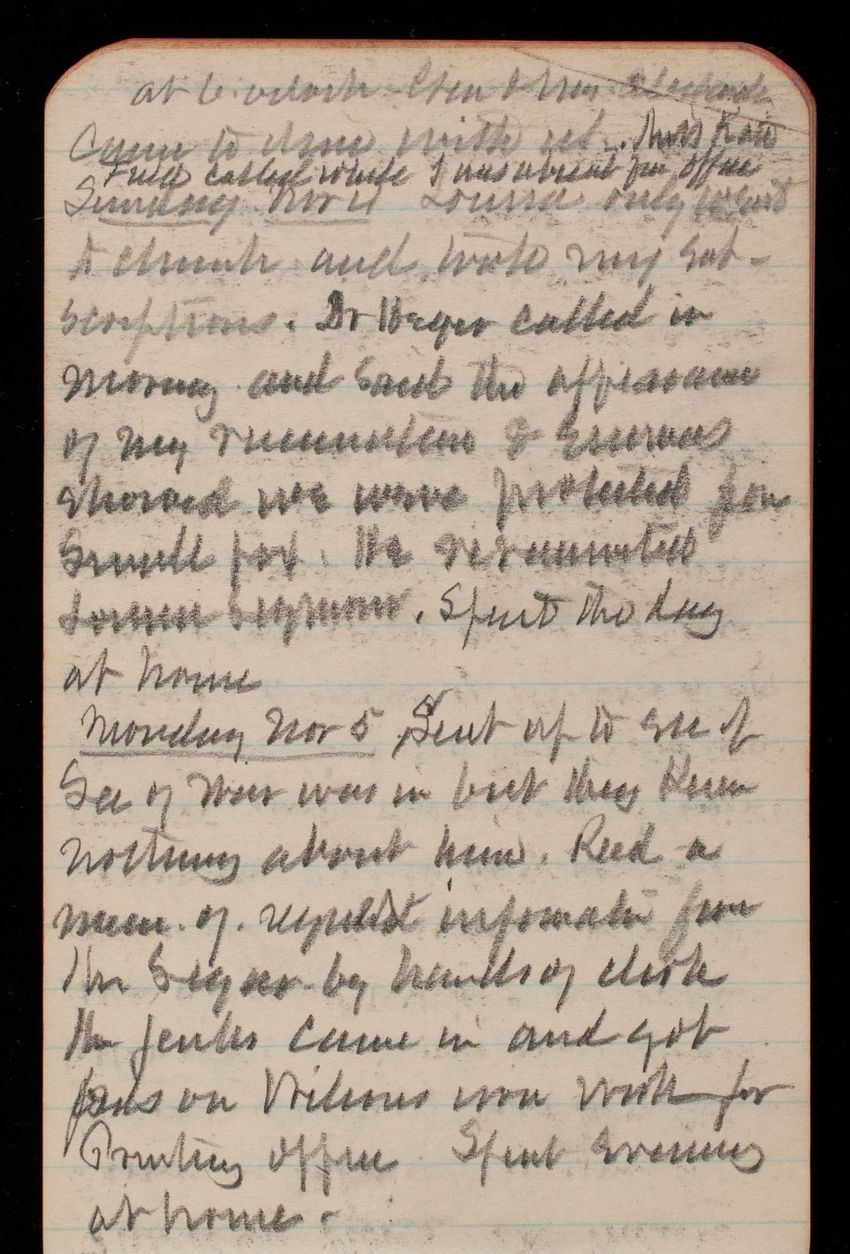 at 6 oclock Genl & Mrs
Came to dine with us. Miss Kate
Field called while I was absent for office
Sunday Nov 4 Louisa only went
to church and wrote my Sub-
scriptions. Dr Heger called in
Morning and said the appearance
of my vaccination & Guerneys
showed we were protected from
Small pox. He revaccinated
. Spent the day
at home
Monday Nov 5 Sent up to see if
Sec of War was in but they knew
nothing about him. Recd a
mem. of. request information from
the by hands of clerk
Mr Jenks came in and got
pans on Wilsons iron work for
Printing office Spent Evening
at home.